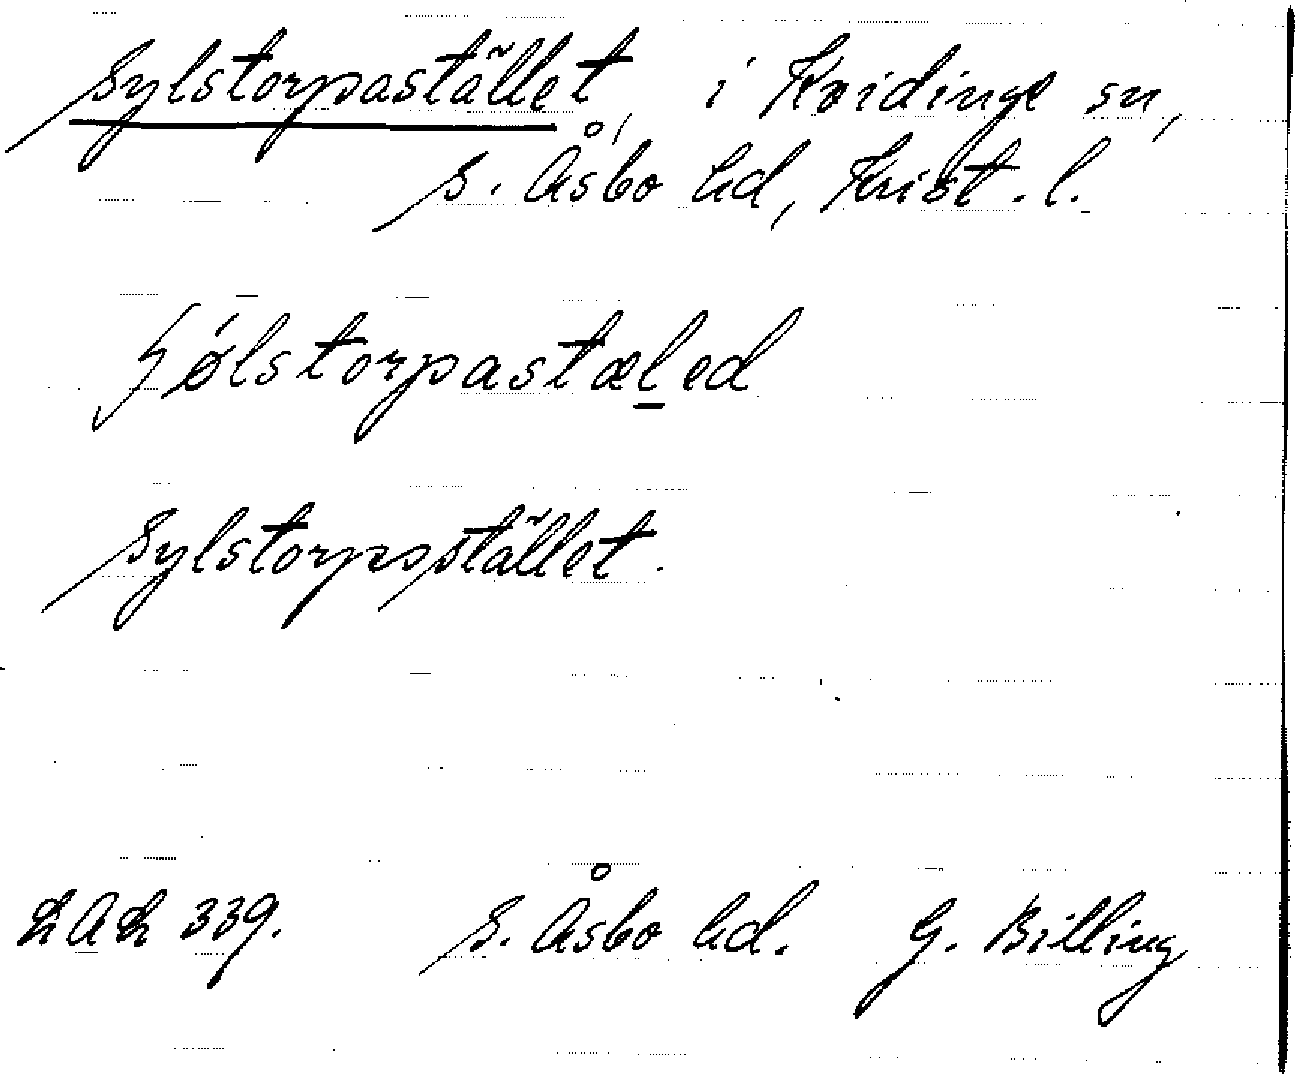 Sylstorpastället, i Kvidinge sn,
S. Åsbo hd, Krist. l.
sǿlstorpastæl̲ed
Sylstorpsstället.
LAL 339. S. Åsbo hd. G. Billing